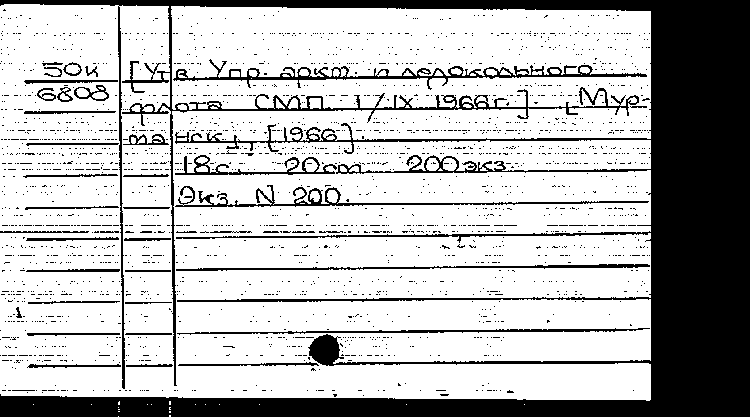 50к [Утв. Упр. аркт. и ледокольного
6808 флота СМП 1/IX 1966г.]. [Мур-
манск], [1966].
18с. 20см. 200экз.
Экз. N 200.